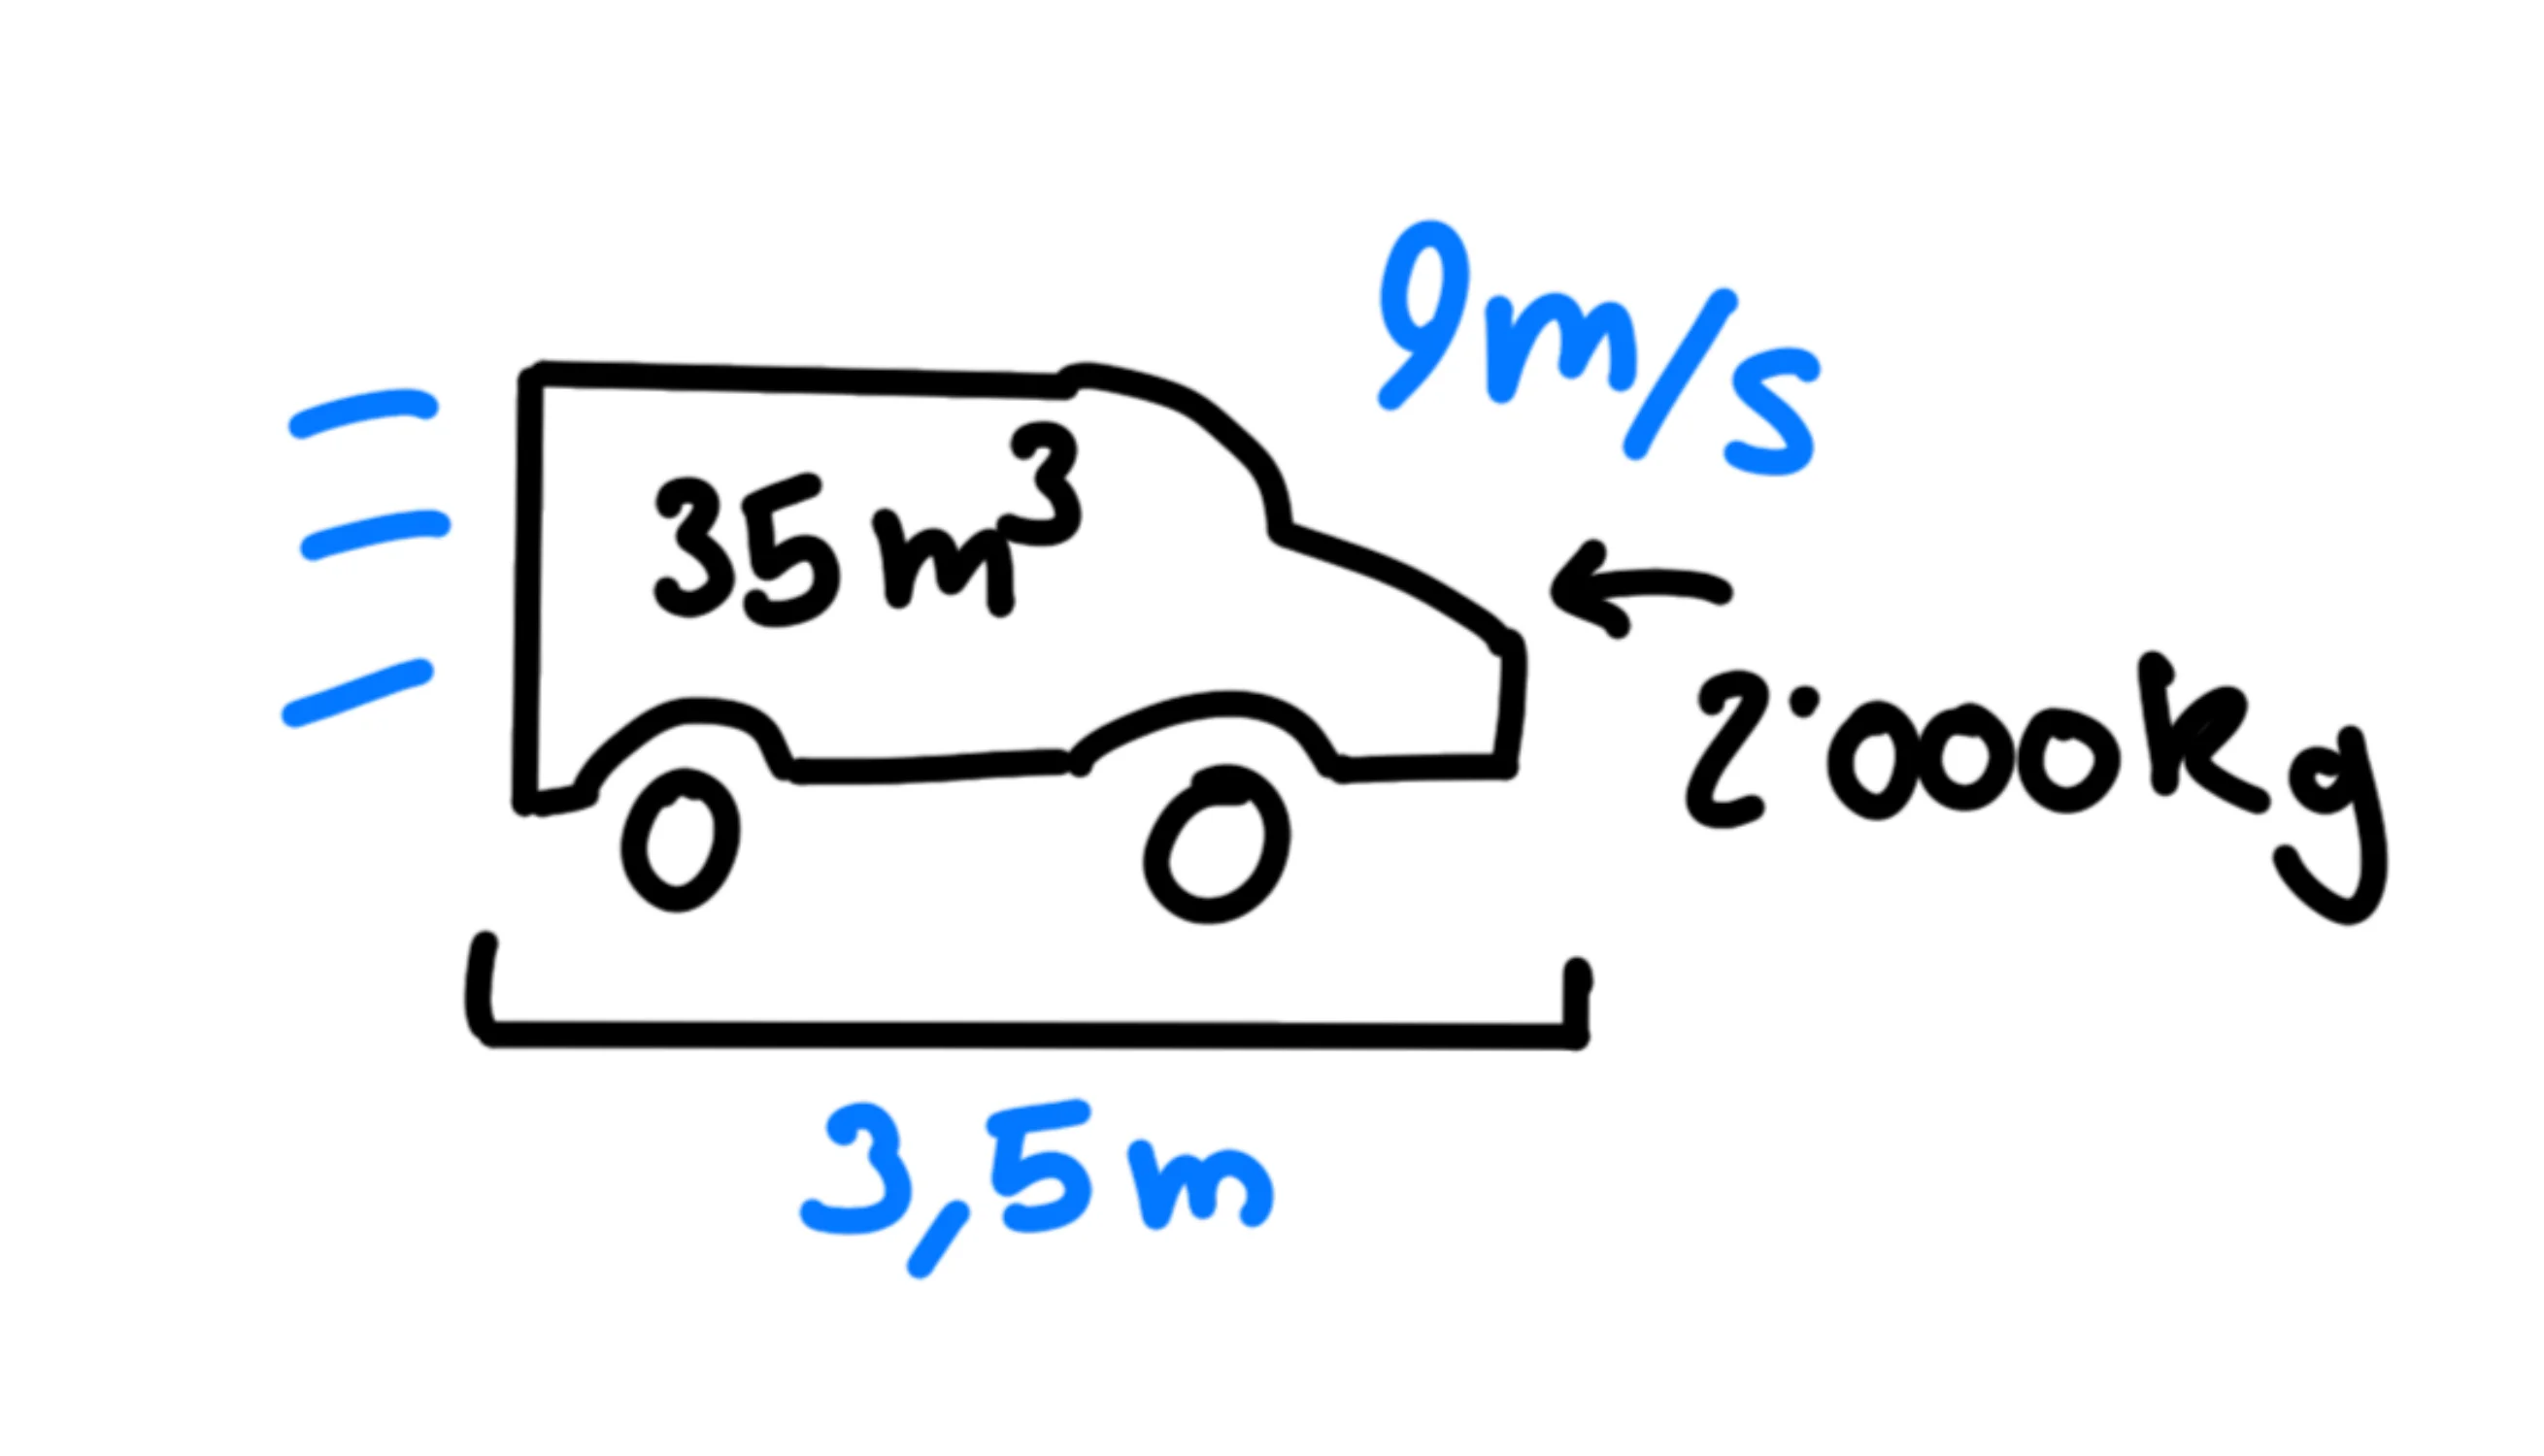 9m/s
35m³
2·000kg
3,5m